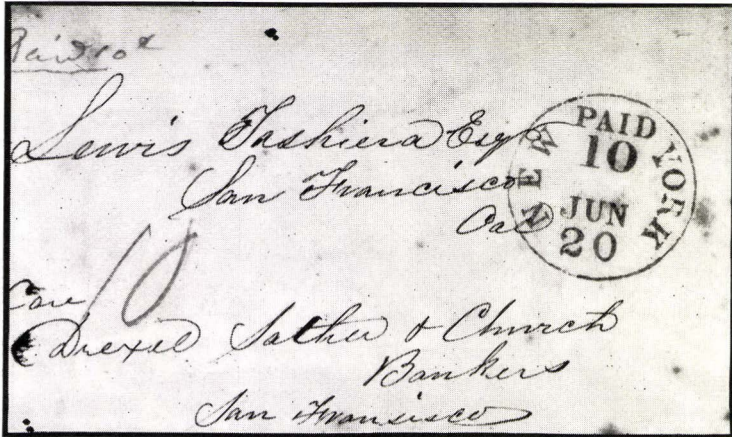 Paid 10¢
Lewis Tashiera Esq
San Francisco
Cal
NEW YORK
PAID
10
JUN
20
10
Care
Drexel Sather & Church
Bankers
San Francisco